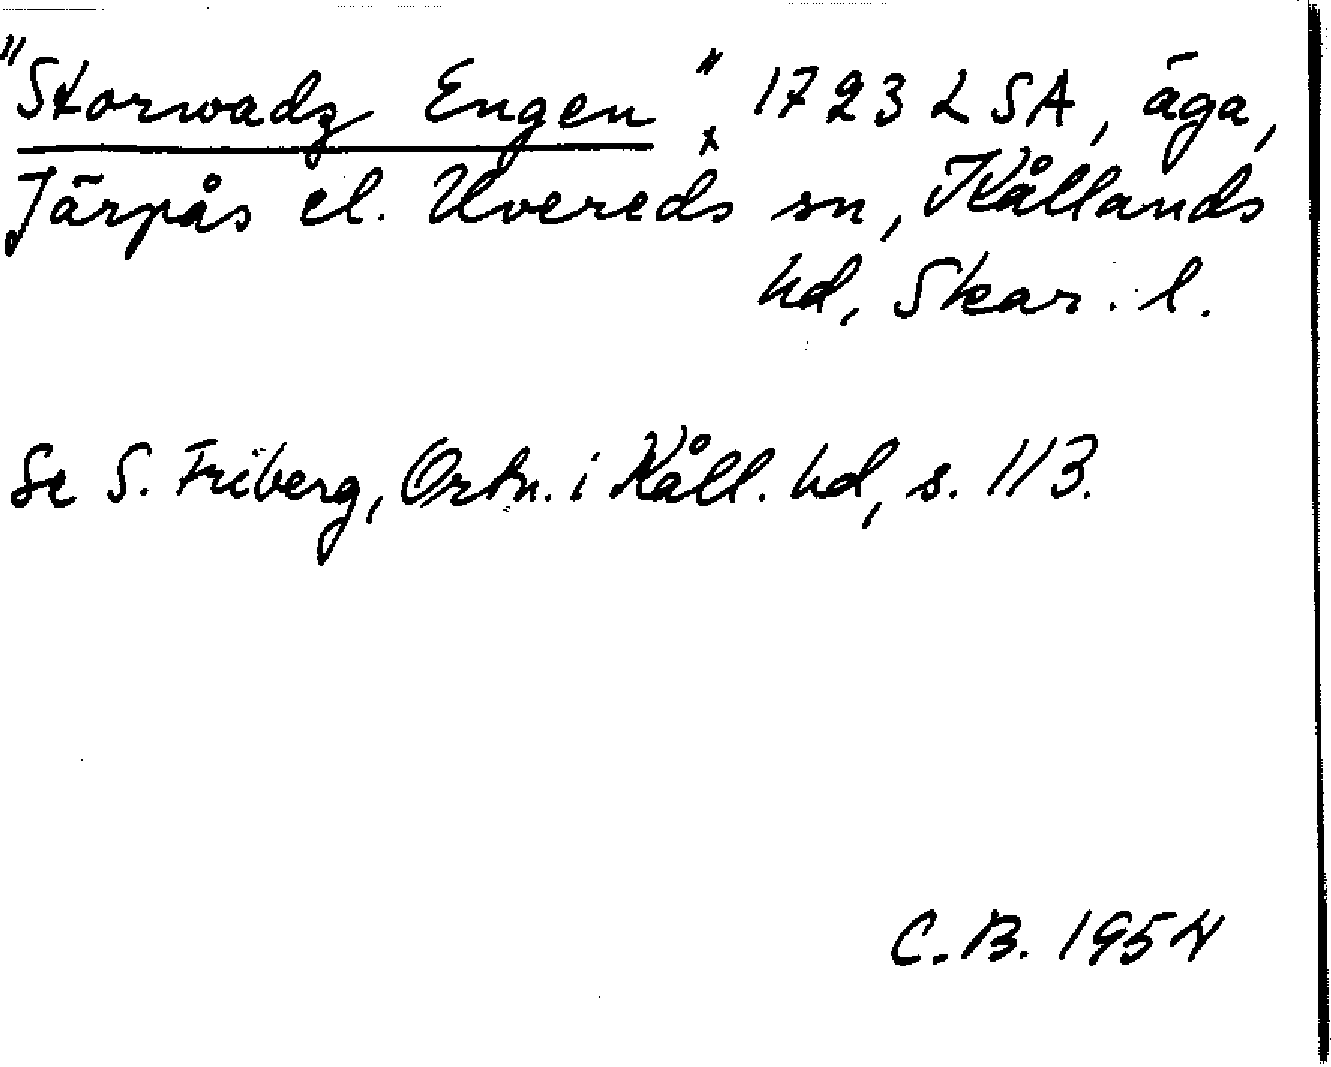 "Storwadz Engen"x 1723 LSA, äga,
Järpås el. Uvereds sn, Kållands
hd, Skar. l.
Se S. Friberg, Ortn. i Kåll. hd, s. 113.
C.B. 1954